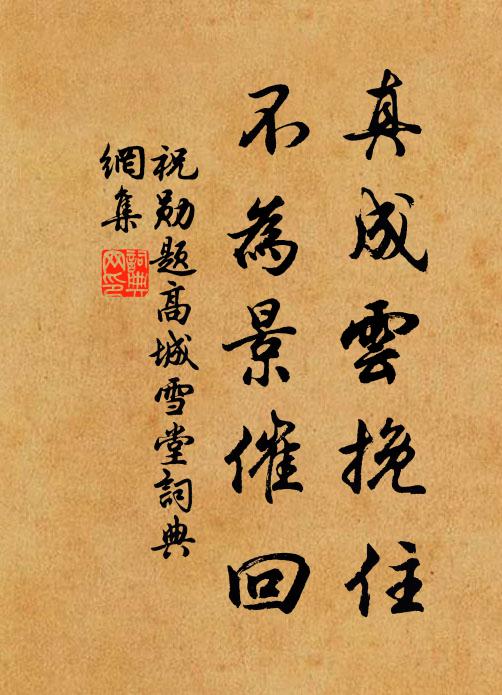 真成雲挽住
不為景催回
祝勛題高城雪堂詞典
網集
詞典
网印